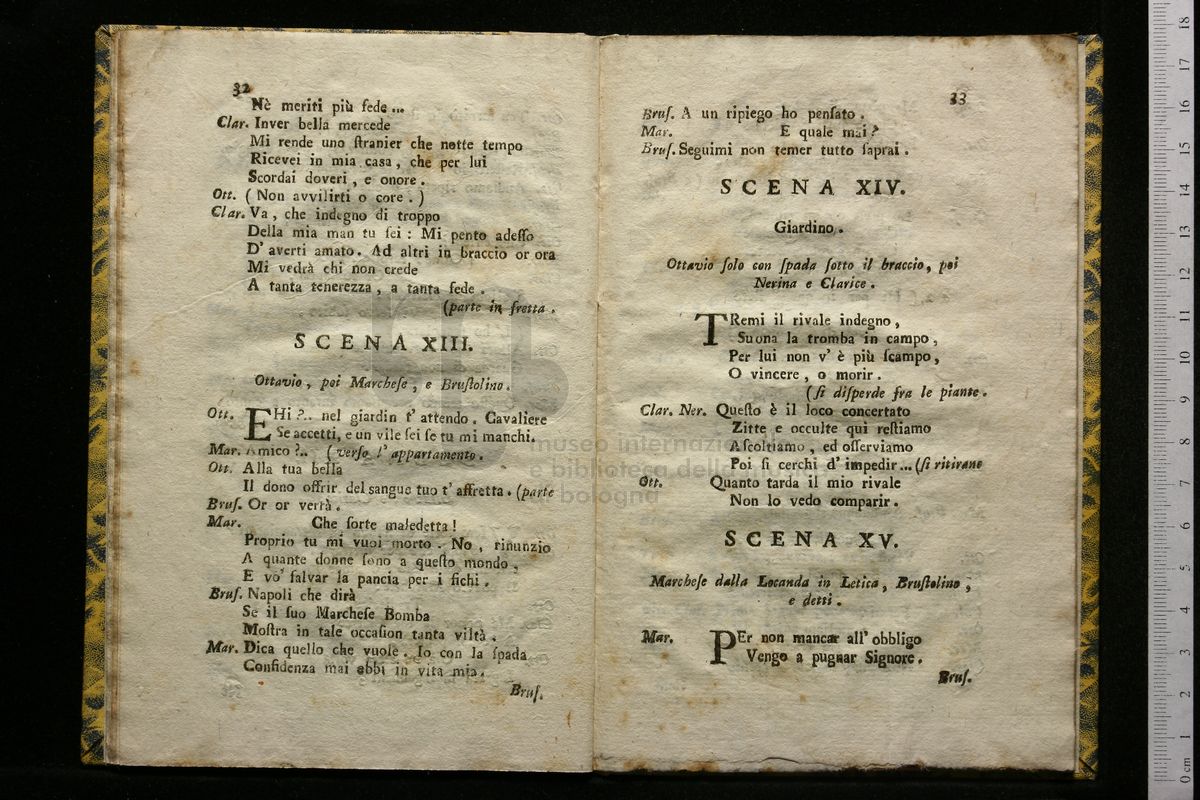 32
Nè meriti più fede ...
Clar. Inver bella mercede
Mi rende uno ſtranier che notte tempo
Ricevei in mia casa, che per lui
Scordai doveri, e onore.
Ott. ( Non avvilirti o core. )
Clar. Va, che indegno di troppo
Della mia man tu ſei : Mi pento adeſſo
D' averti amato. Ad altri in braccio or ora
Mi vedrà chi non crede
A tanta tenerezza, a tanta fede.
(parte in fretta.
SCENA XIII.
Ottavio, poi Marcheſe, e Bruſtolino.
Ott. EHi ?.. nel giardin t' attendo. Cavaliere
Se accetti, e un vile ſei ſe tu mi manchi.
Mar. Amico ?.. ( verſo l' appartamento.
Ott. Alla tua bella
Il dono offrir del sangue tuo t' affretta. (parte
Bruſ. Or or verrà.
Mar. Che ſorte maledetta !
Proprio tu mi vuoi morto. No, rinunzio
A quante donne ſono a queſto mondo,
E vo' ſalvar la pancia per i fichi.
Bruſ. Napoli che dirà
Se il ſuo Marcheſe Bomba
Moſtra in tale occaſion tanta viltà.
Mar. Dica quello che vuole. Io con la ſpada
Confidenza mai ebbi in vita mia.
Bruſ.
33
Bruſ. A un ripiego ho penſato.
Mar. E quale mai ?
Bruſ. Seguimi non temer tutto ſaprai.
SCENA XIV.
Giardino.
Ottavio ſolo con ſpada ſotto il braccio, poi
Nerina e Clarice.
TRemi il rivale indegno,
Suona la tromba in campo,
Per lui non v' è più ſcampo,
O vincere, o morir.
(ſi diſperde fra le piante.
Clar. Ner. Queſto è il loco concertato
Zitte e occulte quì reſtiamo
Aſcoltiamo, ed oſſerviamo
Poi ſi cerchi d' impedir... (ſi ritirano
Ott. Quanto tarda il mio rivale
Non lo vedo comparir.
SCENA XV.
Marcheſe dalla Locanda in Letica, Bruſtolino,
e detti.
Mar. PEr non mancar all' obbligo
Vengo a pugnar Signore.
Bruſ.
museo internazionale
e biblioteca della
bologna
0 cm 1 2 3 4 5 6 7 8 9 10 11 12 13 14 15 16 17 18